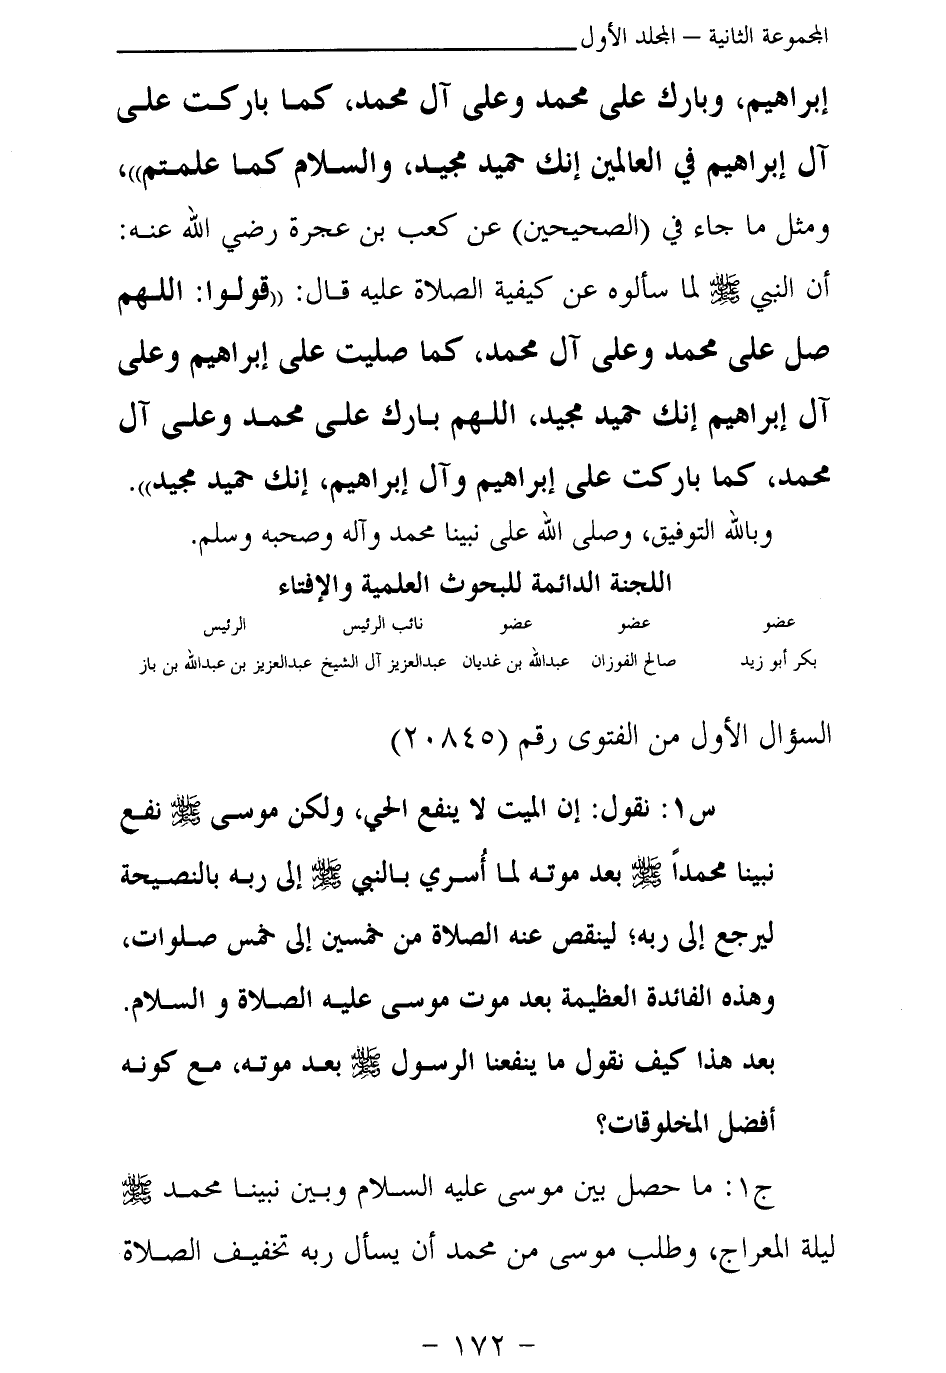 المجموعة الثانية – المجلد الأول
إبراهيم، وبارك على محمد وعلى آل محمد، كما باركت على
آل إبراهيم في العالمين إنك حميد مجيد، والسلام كما علمتم))،
ومثل ما جاء في (الصحيحين) عن كعب بن عجرة رضي الله عنه:
أن النبي ﷺ لما سألوه عن كيفية الصلاة عليه قال: ((قولوا: اللهم
صل على محمد وعلى آل محمد، كما صليت على إبراهيم وعلى
آل إبراهيم إنك حميد مجيد، اللهم بارك على محمد وعلى آل
محمد، كما باركت على إبراهيم وآل إبراهيم، إنك حميد مجيد)).
وبالله التوفيق، وصلى الله على نبينا محمد وآله وصحبه وسلم.
اللجنة الدائمة للبحوث العلمية والإفتاء
عضو عضو عضو نائب الرئيس الرئيس
بكر أبو زيد صالح الفوزان عبدالله بن غديان عبدالعزيز آل الشيخ عبدالعزيز بن عبدالله بن باز
السؤال الأول من الفتوى رقم (٢٠٨٤٥)
س١: نقول: إن الميت لا ينفع الحي، ولكن موسى ﷺ نفع
نبينا محمداً ﷺ بعد موته لما أُسري بالنبي ﷺ إلى ربه بالنصيحة
ليرجع إلى ربه؛ لينقص عنه الصلاة من خمسين إلى خمس صلوات،
وهذه الفائدة العظيمة بعد موت موسى عليه الصلاة و السلام.
بعد هذا كيف نقول ما ينفعنا الرسول ﷺ بعد موته، مع كونه
أفضل المخلوقات؟
ج١: ما حصل بين موسى عليه السلام وبين نبينا محمد ﷺ
ليلة المعراج، وطلب موسى من محمد أن يسأل ربه تخفيف الصلاة
– ١٧٢ –